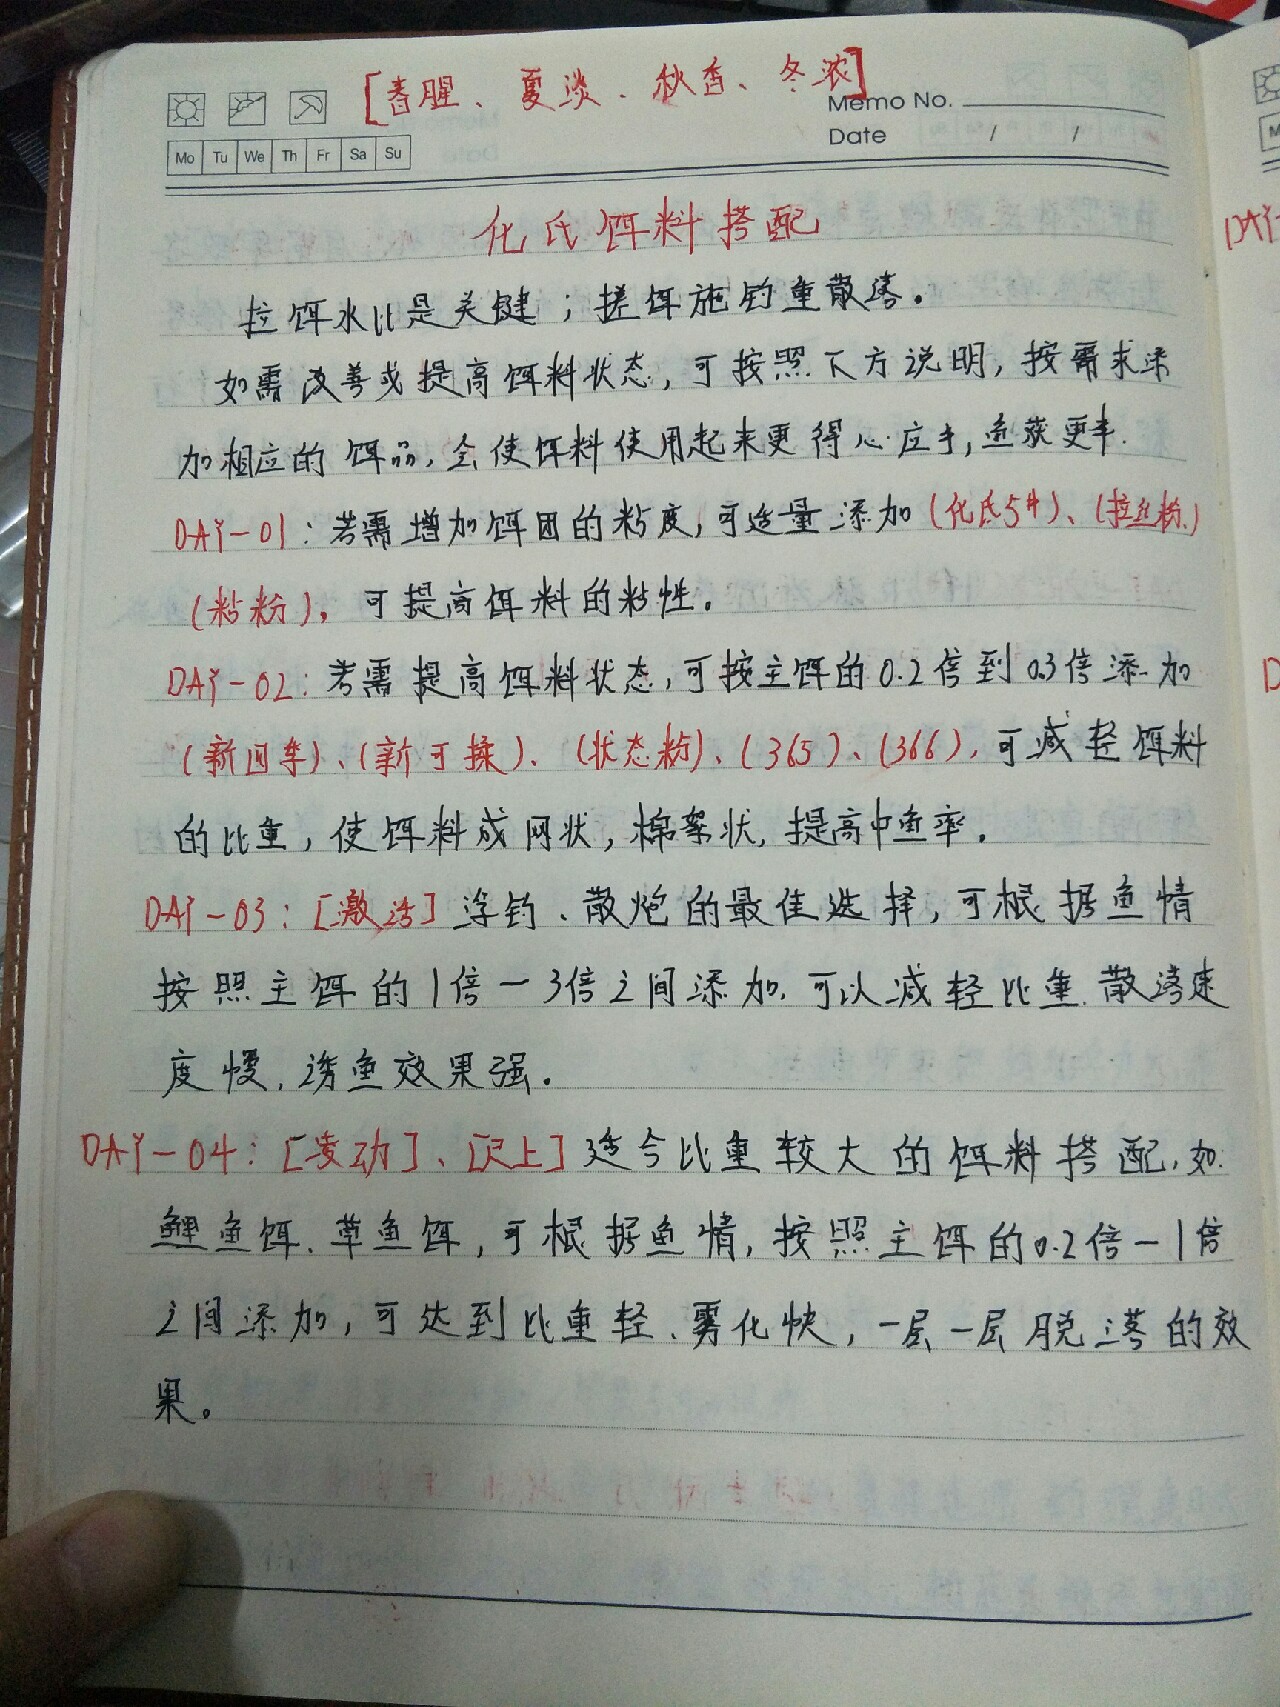 [春腥、夏淡、秋香、冬浓]
Memo No.
Mo Tu We Th Fr Sa Su
Date / /
化氏饵料搭配
拉饵水比是关键；搓饵施钓重散落。
如需改善或提高饵料状态，可按照下方说明，按需求添
加相应的饵品，会使饵料使用起来更得心应手，鱼获更丰.
DAY-01：若需增加饵团的粘度，可适量添加(化氏5#)、(拉丝粉)
(粘粉)。可提高饵料的粘性。
DAY-02：若需提高饵料状态，可按主饵的0.2倍到0.3倍添加
(新回率)、(新可揉)、(状态粉)、(365)、(366)，可减轻饵料
的比重，使饵料成网状，棉絮状，提高中鱼率。
DAY-03：[激活]浮钓、散炮的最佳选择，可根据鱼情
按照主饵的1倍一3倍之间添加，可以减轻比重，散落速
度慢，诱鱼效果强。
DAY-04：[凌动]、[尺上]适合比重较大的饵料搭配，如
鲤鱼饵、草鱼饵，可根据鱼情，按照主饵的0.2倍一1倍
之间添加，可达到比重轻、雾化快，一层一层脱落的效
果。
DAY
D